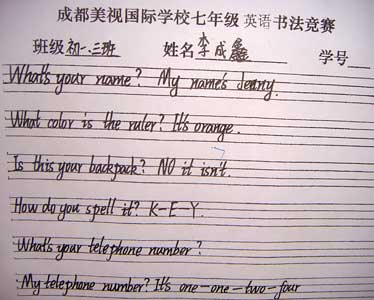 成都美视国际学校七年级 英语 书法竞赛
班级初一.三班 姓名李成鑫 学号
What's your name? My name's Jenny.
What color is the ruler? It's orange.
Is this your backpack? NO it isn't.
How do you spell it? K-E-Y.
What's your telephone number?
My telephone number? It's one-one-two-four